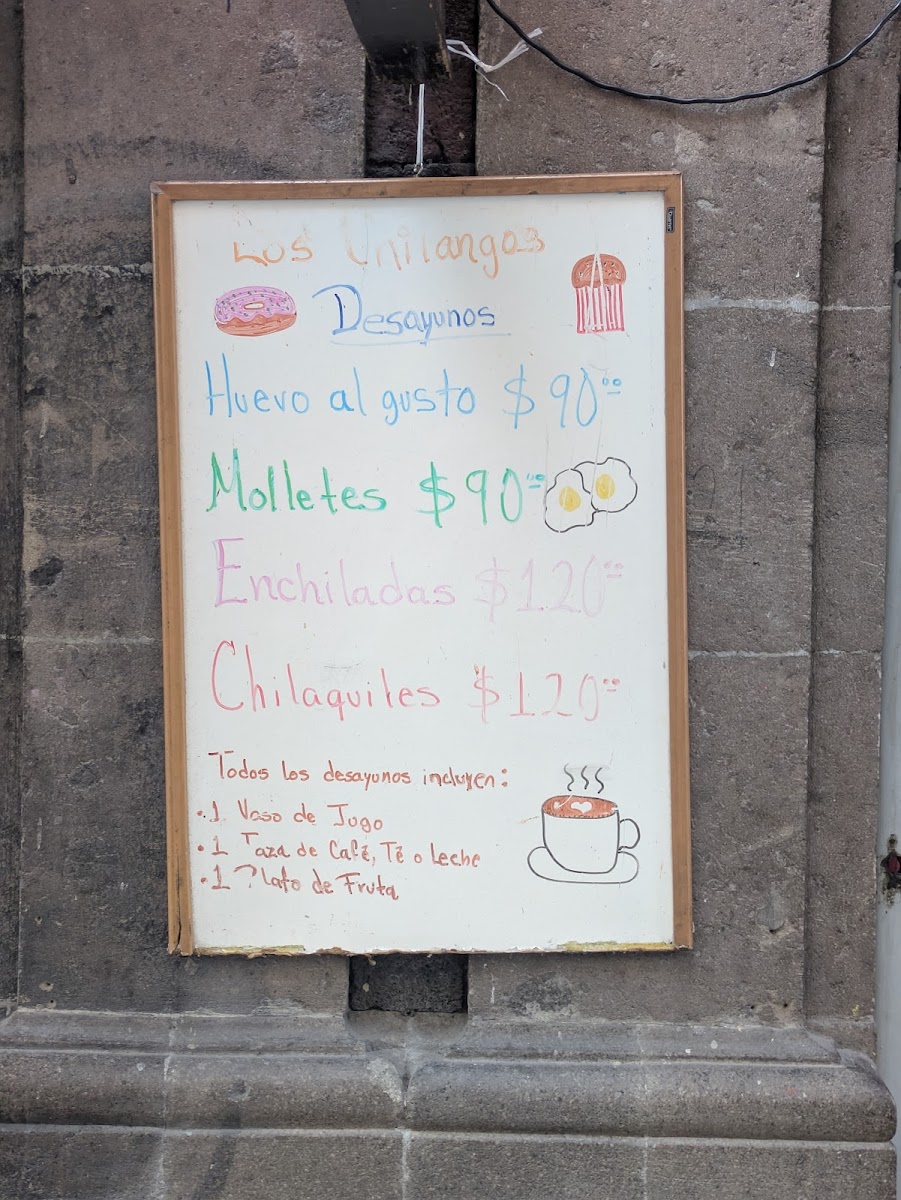 Los Chilangos
Desayunos
Huevo al gusto $90.00
Molletes $90.00
Enchiladas $120.00
Chilaquiles $120.00
Todos los desayunos incluyen:
• 1 Vaso de Jugo
• 1 Taza de Café, Té o Leche
• 1 Plato de Fruta